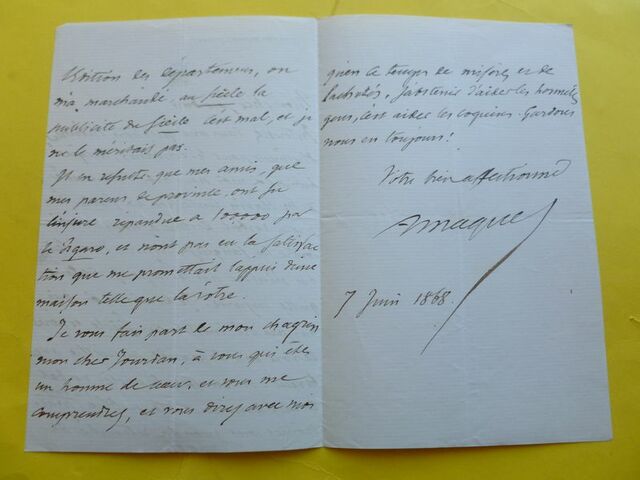 édition des départemens, on
m'a marchandé, au siècle la
publicité du Siècle c'est mal, et je
ne le méritais pas.
Il en résulte que mes amis, que
mes parens de province ont su
l'injure répandue à 100,000 par
le Figaro, et n'ont pas eu la satisfac
tion que me promettait l'appui d'une
maison telle que la vôtre.
Je vous fais part de mon chagrin
mon cher Jourdan, à vous qui êtes
un homme de cœur, et vous me
comprendrez, et vous direz avec moi
qu'en ce temps de misères et de
lachetés, s'abstenir d'aider les honnêtes
gens, c'est aider les coquins. Gardons
nous en toujours!
Votre bien affectionné
A Maquet
7 Juin 1868.